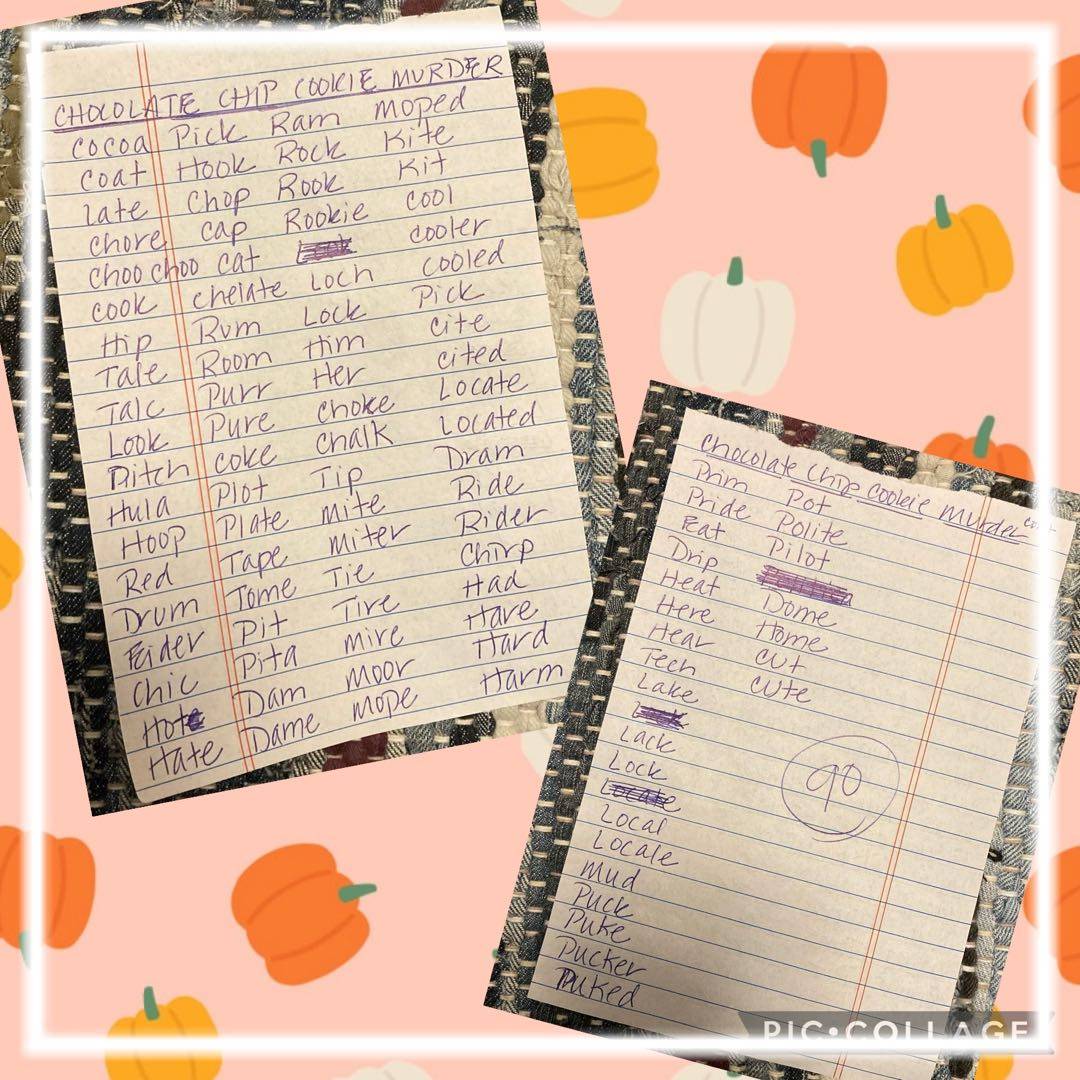 CHOCOLATE CHIP COOKIE MURDER
Cocoa Pick Ram moped
Coat Hook Rock Kite
Late Chop Rook Kit
Chore Cap Rookie Cool
Choo choo Cat cooler
cook chelate Loch cooled
Hip Rum Lock Pick
Tale Room Him cite
Talc Purr Her cited
Look Pure choke Locate
Pitch coke chalk Located
Hula Plot Tip Dram
Hoop Plate mite Ride
Red Tape miter Rider
Drum Tome Tie Chirp
Eider Pit Tire Had
Chic Pita mire Hare
Hot Dam moor Hard
Hate Dame mope Harm
Chocolate Chip Cookie Murder cont
Prim Pot
Pride Polite
Eat Pilot
Drip
Heat Dome
Here Home
Hear cut
Tech cute
Lake
Lack
Lock
Local
Locale
Mud
Puck
Puke
Pucker
Puked
90
PIC•COLLAGE